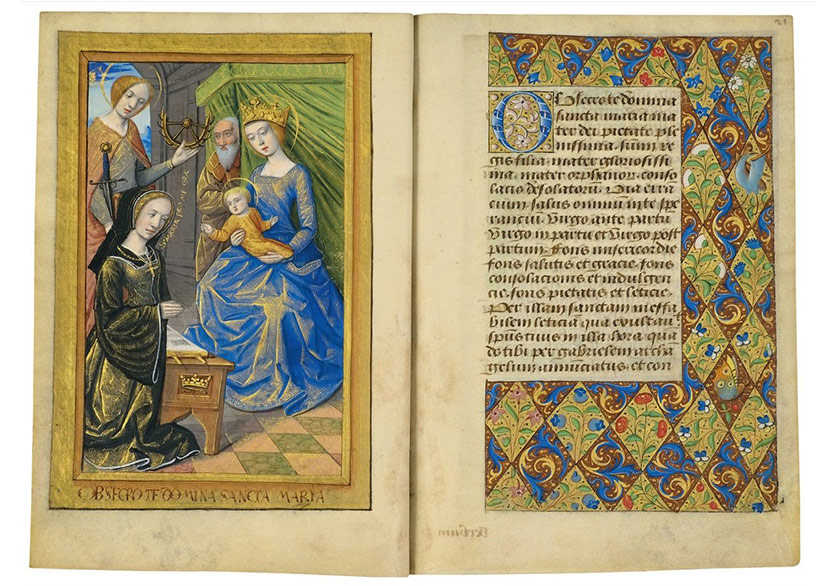 OBSECRO TE DOMINA SANCTA MARIA
21
Obsecro te domina
sancta maria ma
ter dei pietate ple
nissima. sum̄i re
gis filia. mater gloriosissi
ma. mater orphanor̄. conso
lacio desolatorū. Via erra
cium salus omniū in te spe
rancium. Virgo ante partū
Virgo in partu et Virgo post
partum. Fons misericordie
fons salutis et gracie. fons
consolacionis et indulgen
cie. fons pietatis et leticie.
Per illam sanctam ineffa
bilem leticiā qua exultauͥt
sp̄us tuus in illa hora qua
d tibi per gabrielem archā
gelum annūciatus. et con